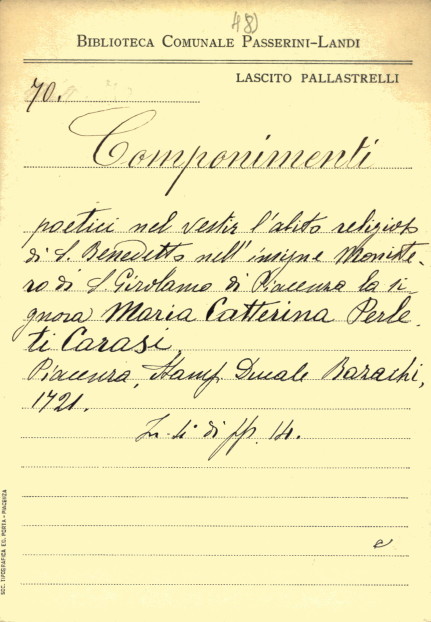 48)
BIBLIOTECA COMUNALE PASSERINI-LANDI
LASCITO PALLASTRELLI
70.
Componimenti
poetici nel vestir l'abito religioso
di S. Benedetto nell'insigne Moniste-
ro di S. Girolamo di Piacenza la si-
gnora Maria Catterina Perle-
ti Carasi,
Piacenza, Stamp. Ducale Bazachi,
1721.
In-4° di pp. 14.
SOC. TIPOGRAFICA ED. PORTA - PIACENZA